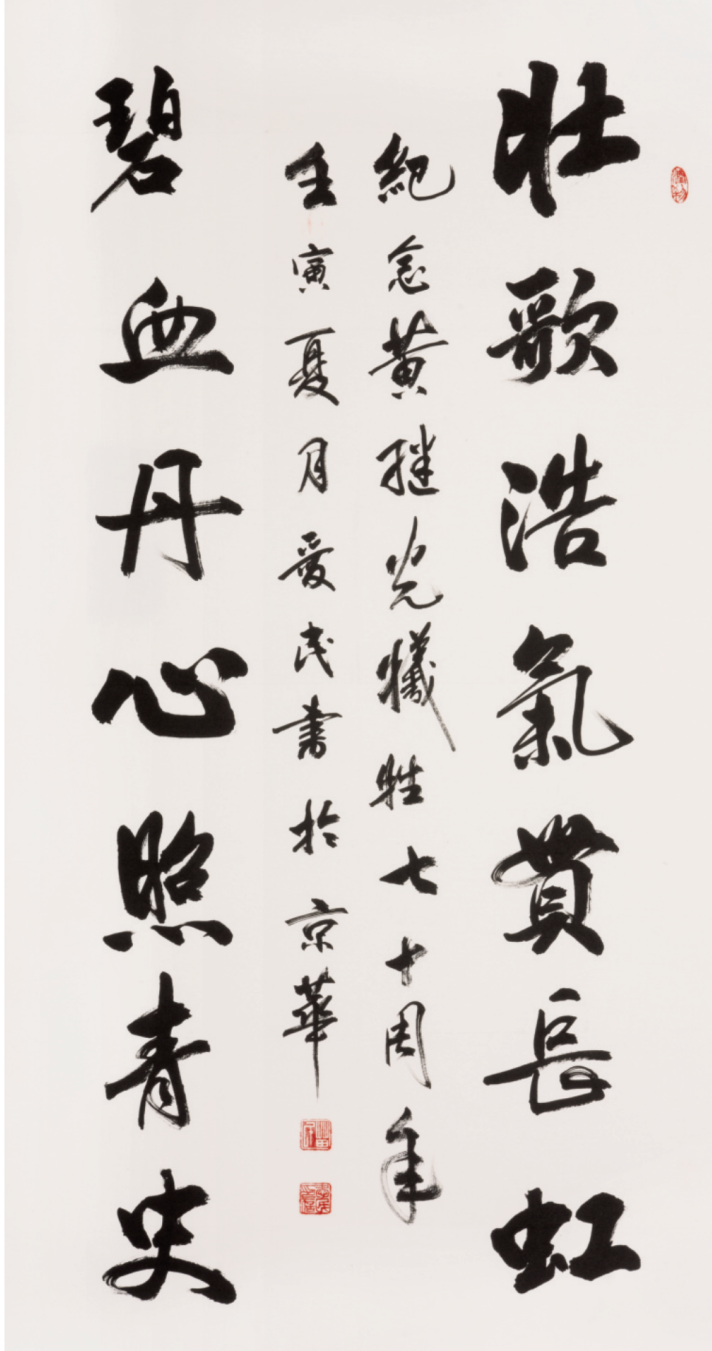 壯歌浩氣貫長虹
紀念黄繼光犧牲七十周年
壬寅夏月愛民書於京華
碧血丹心照青史